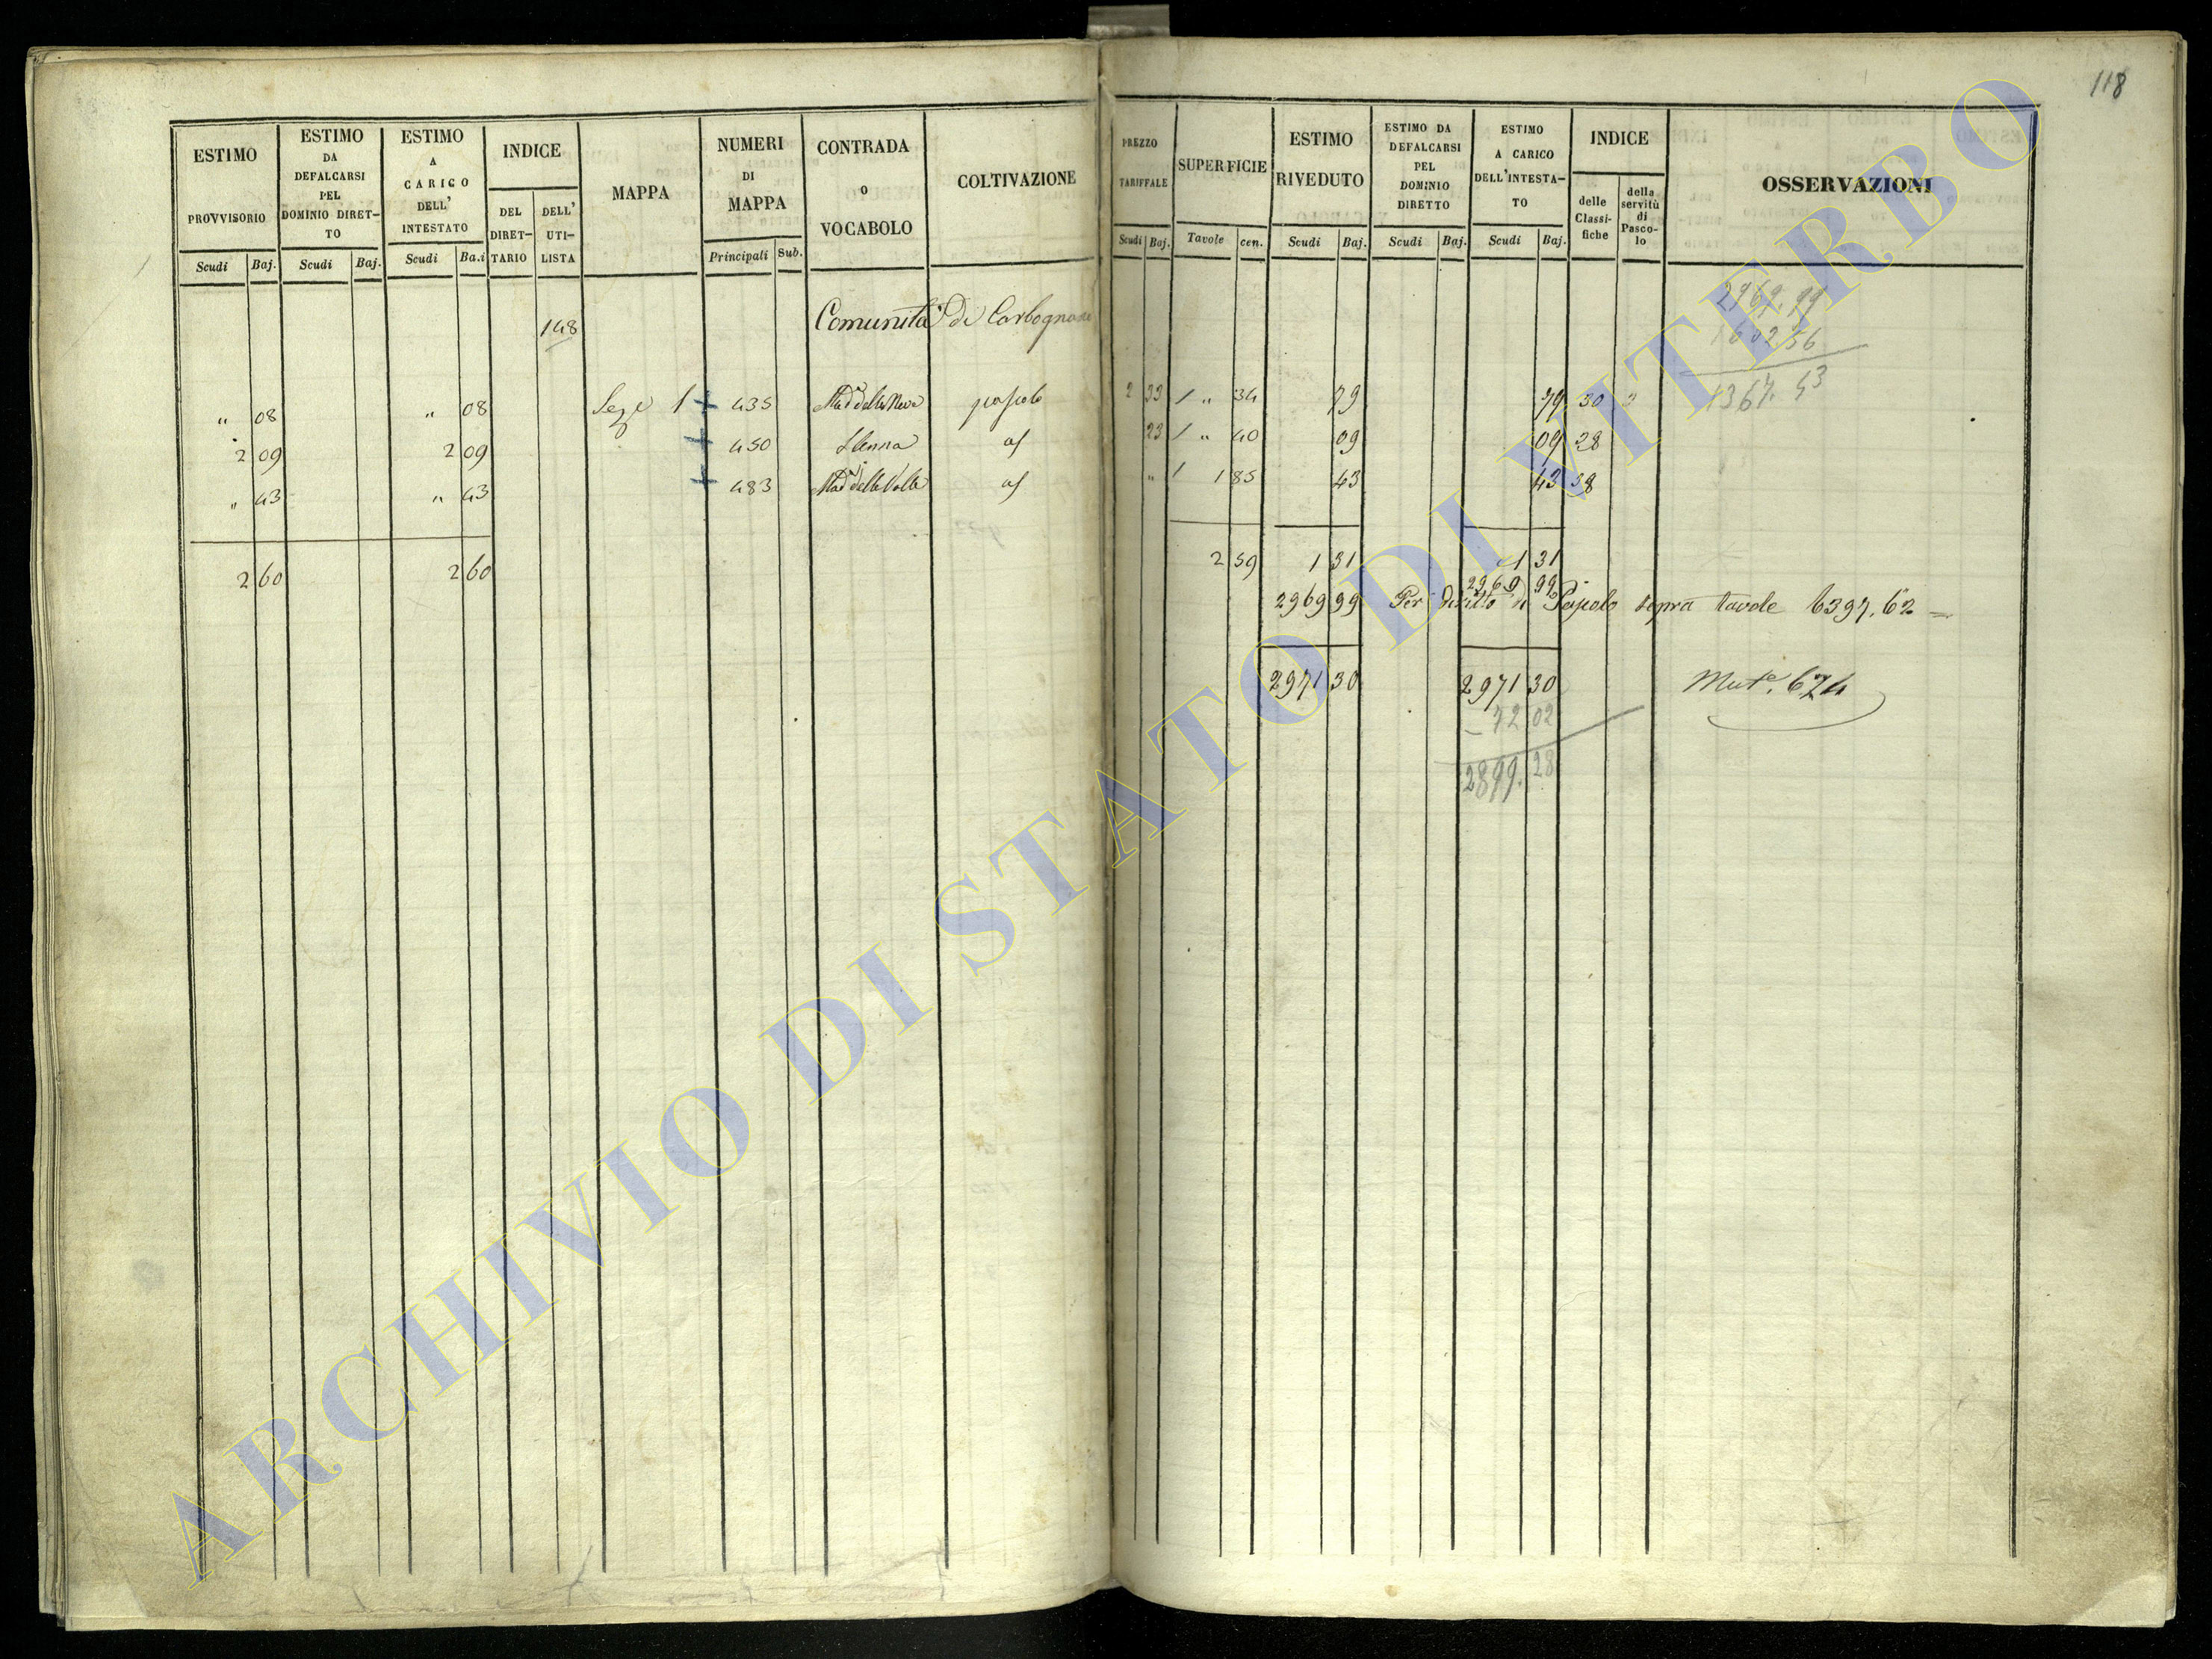 118
ESTIMO PROVVISORIO
ESTIMO DA DEFALCARSI PEL DOMINIO DIRETTO
ESTIMO A CARICO DELL' INTESTATO
INDICE
DEL DIRETTARIO
DELL' UTILISTA
MAPPA
NUMERI DI MAPPA
CONTRADA O VOCABOLO
COLTIVAZIONE
PREZZO TARIFFALE
SUPERFICIE
ESTIMO RIVEDUTO
ESTIMO DA DEFALCARSI PEL DOMINIO DIRETTO
ESTIMO A CARICO DELL'INTESTATO
INDICE
delle Classifiche
della servitù di Pascolo
OSSERVAZIONI
Scudi Baj. Scudi Baj. Scudi Ba.i Principali Sub. Scudi Baj. Tavole cen. Scudi Baj. Scudi Baj. Scudi Baj.
148 Comunità di Carbognano
2969.99
1602 56
1367.43
" 08 " 08 Sez.e 1 435 pascolo 2 33 " 34 79 79 30 3
2 09 2 09 450 23 " 40 09 09 28
" 43 " 43 483 Mad. della Valle " 1 85 43 43 38
2 60 2 60 2 59 1 31 1 31
2969 99
2969 99 Per diritto di Pascolo sopra tavole 6397.62
2971 30 2971 30 Mut.e 674
72 02
2899.28
ARCHIVIO DI STATO DI VITERBO